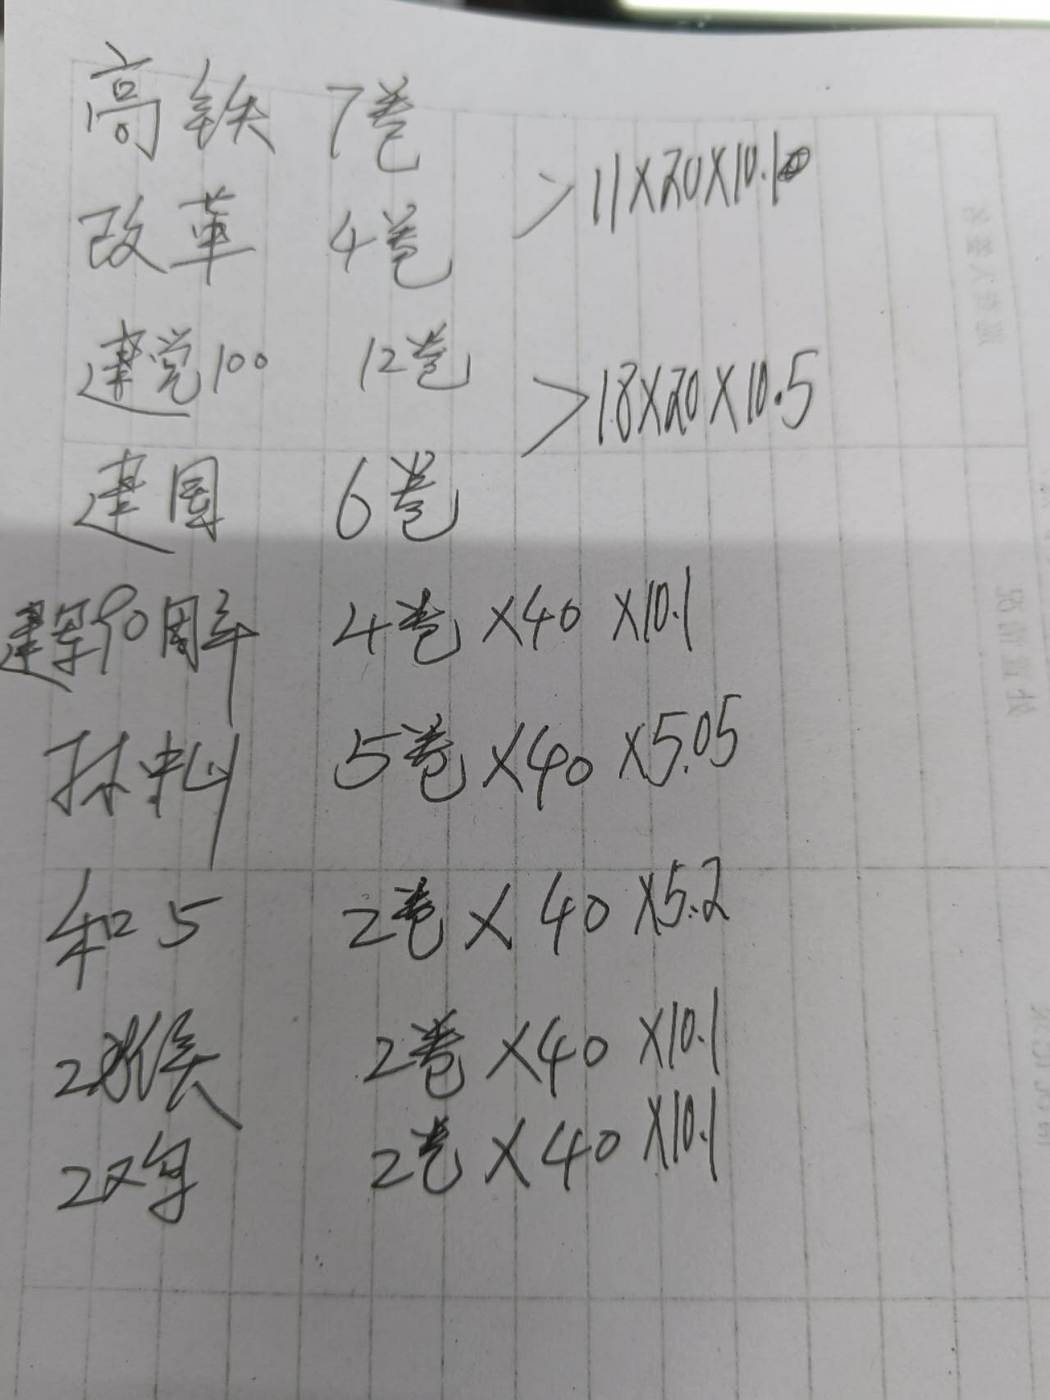 高铁 7卷
改革 4卷
>11×20×10.1
建党100 12卷
建国 6卷
>18×20×10.5
建军90周年 4卷×40×10.1
孙中山 5卷×40×5.05
和5 2卷×40×5.2
2猴 2卷×40×10.1
2鸡 2卷×40×10.1